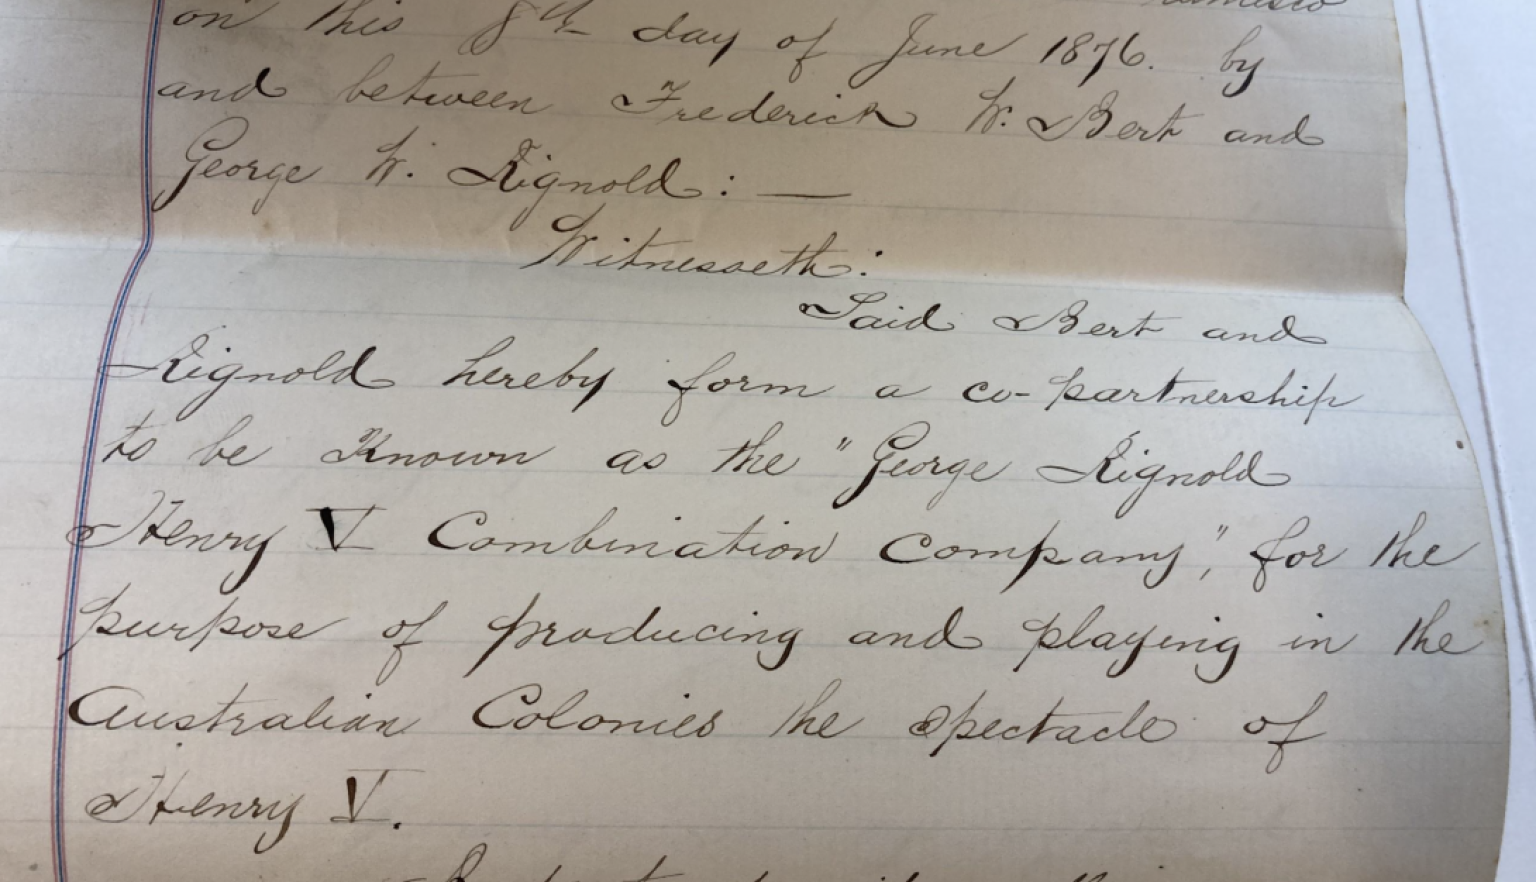 on this 8th day of June 1876. by
and between Frederick W. Bert and
George W. Rignold: —
Witnesseth:
Said Bert and
Rignold hereby form a co-partnership
to be Known as the "George Rignold
Henry V Combination Company", for the
purpose of producing and playing in the
Australian Colonies the Spectacle of
Henry V.